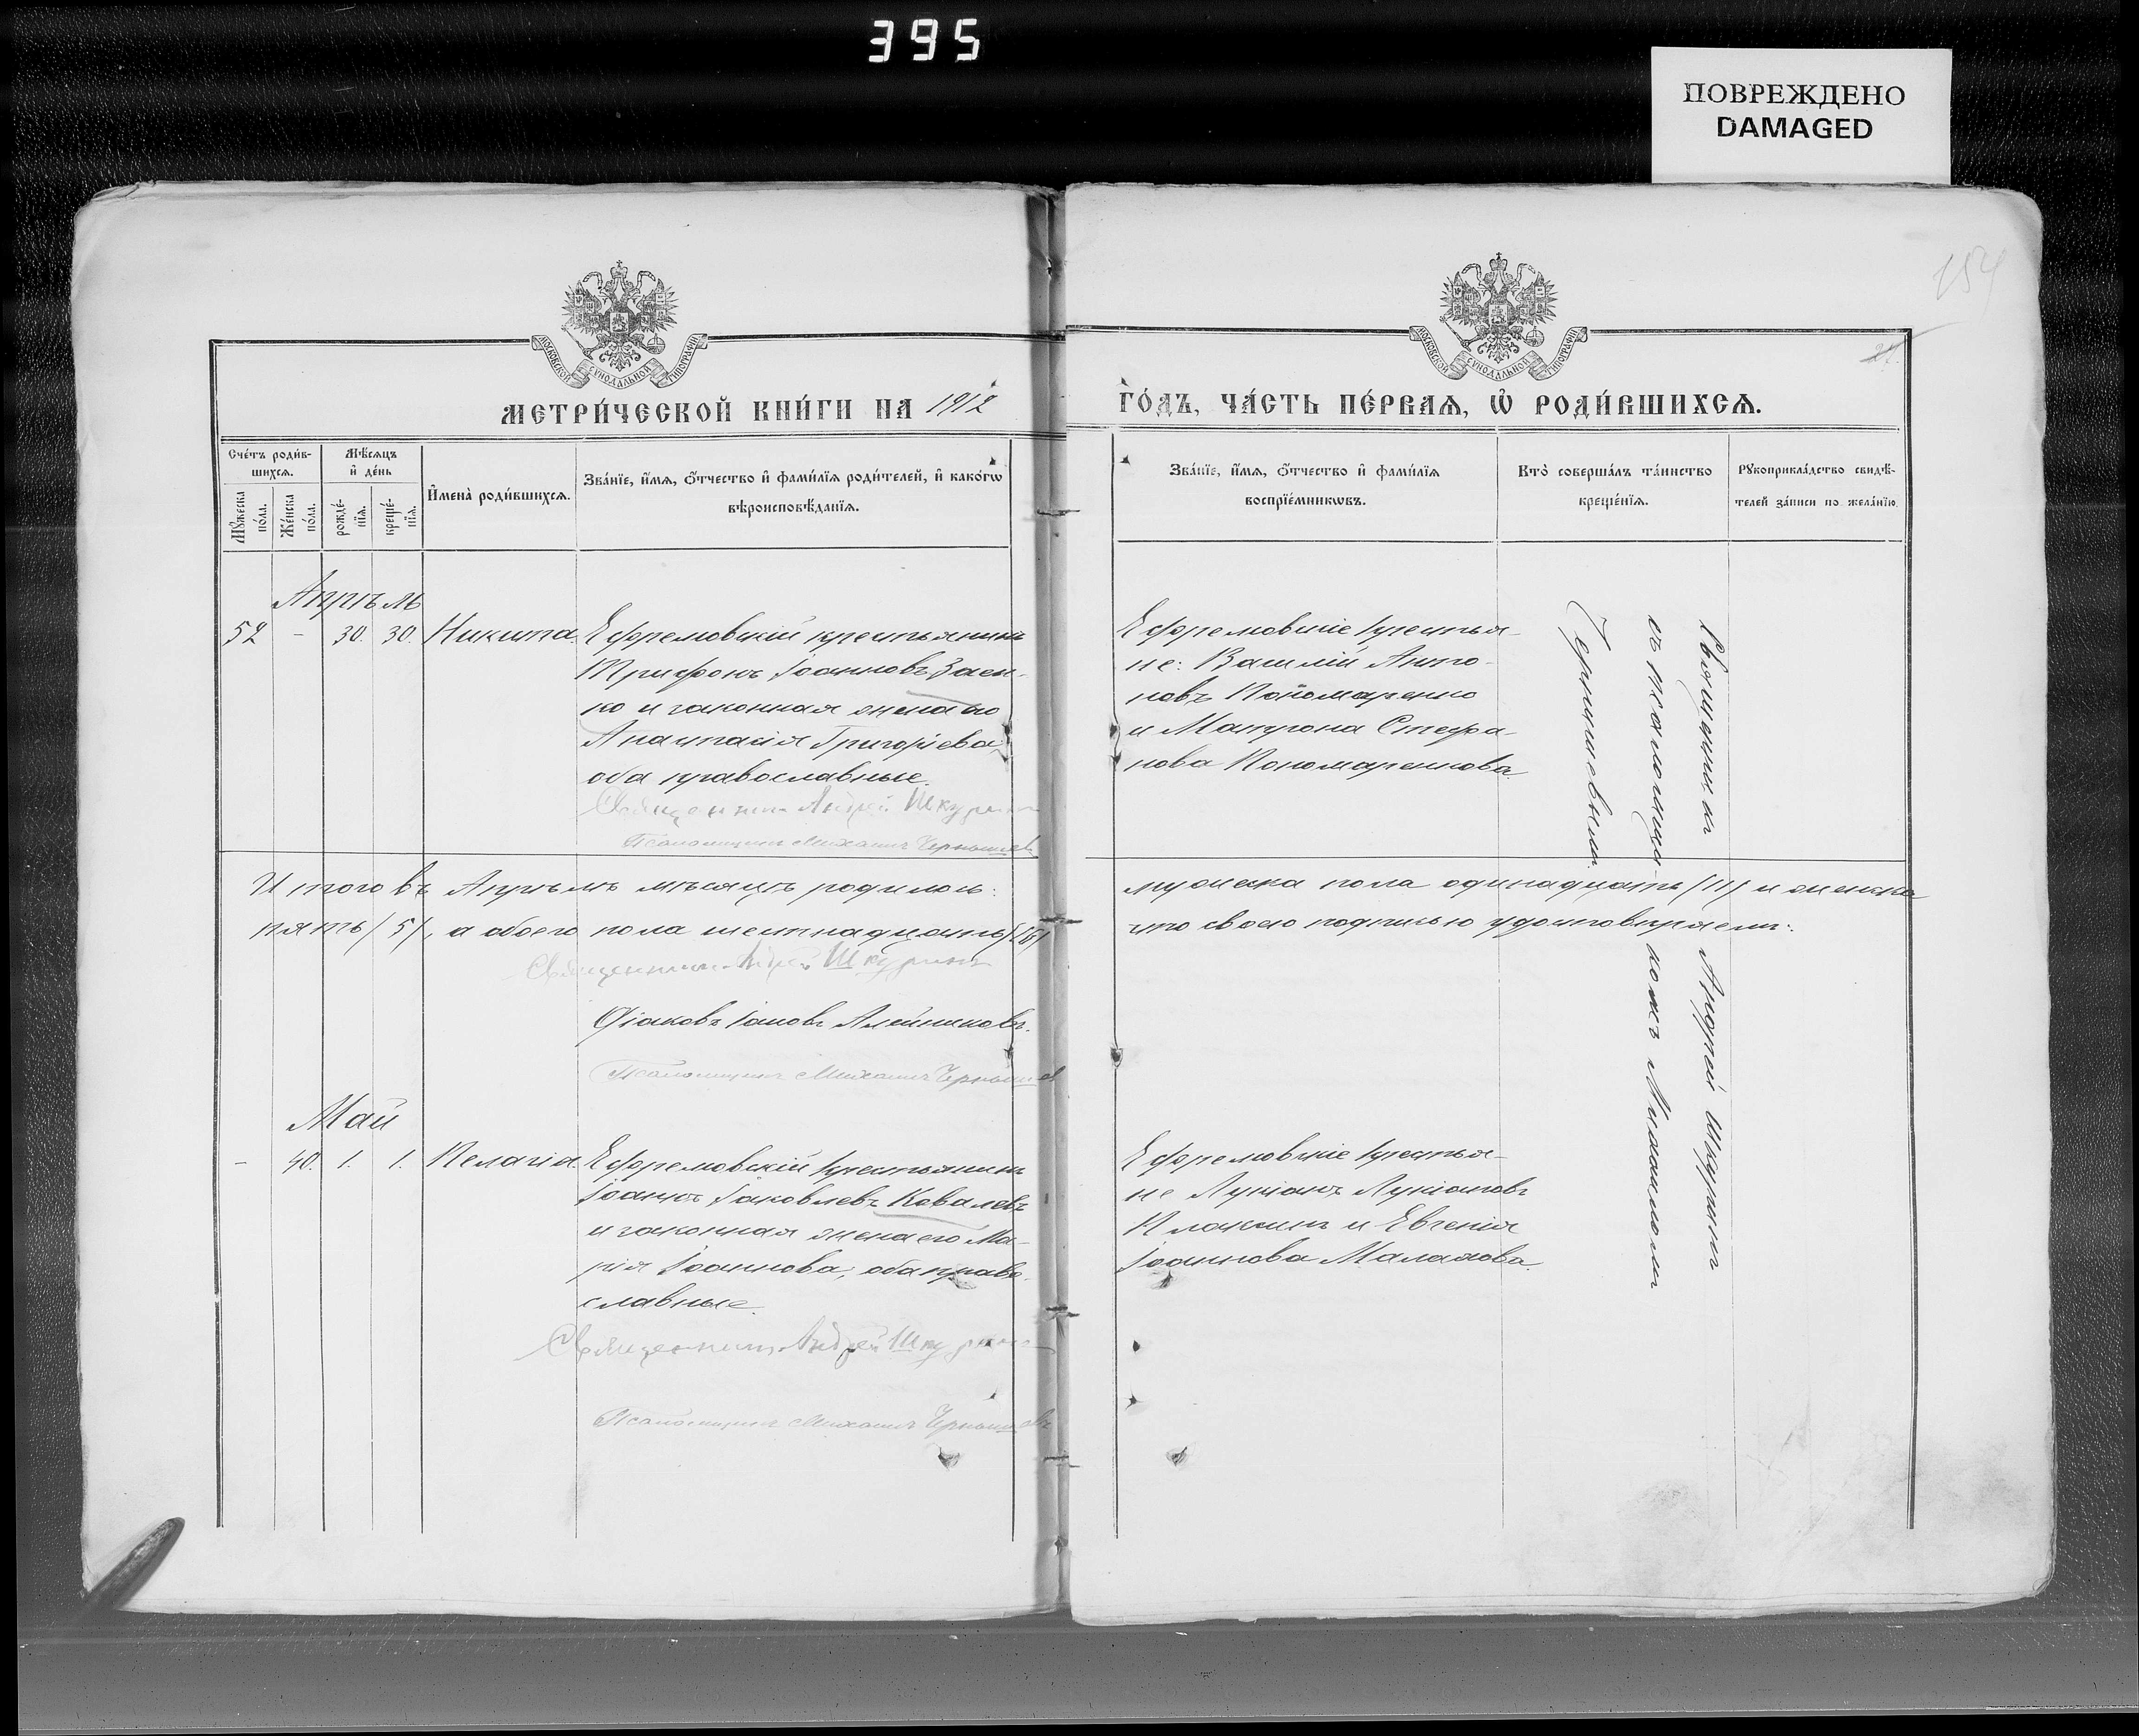 395
ПОВРЕЖДЕНО
DAMAGED
154
МОСКОВСКОЙ СѴНОДАЛЬНОЙ ТИПОГРАФІИ
МОСКОВСКОЙ СѴНОДАЛЬНОЙ ТИПОГРАФІИ
МЕТРИ́ЧЕСКОЙ КНИ́ГИ НА 1912
ГО́ДЪ, ЧА́СТЬ ПЕ́РВАѦ, Ѡ҆ РОДИ́ВШИХСѦ.
Сче́тъ роди́в-
шихсѧ.
Мꙋ́жеска
по́ла.
Же́нска
по́ла.
Мѣ́сѧцъ
и҆ де́нь
рожде́-
нїѧ.
креще́-
нїѧ.
И҆мена̀ роди́вшихсѧ.
Зва́нїе, и҆́мѧ, ѻ҆́тчество и҆ фами́лїѧ роди́телей, и҆ како́гѡ
вѣроисповѣ́данїѧ.
Зва́нїе, и҆́мѧ, ѻ҆́тчество и҆ фами́лїѧ
воспрїе́мникѡвъ.
Кто̀ соверша́лъ та́инство
креще́нїѧ.
Рꙋкоприкла́дство свидѣ́-
телей за́писи по жела́нїю.
Апрѣль
52 - 30. 30. Никита.
Ефремовскій крестьянинъ
Трифонъ Іоанновъ Заен-
ко и законная жена его
Анастасія Григорьева
оба православные.
Священникъ Андрей Шкуринъ
Псаломщикъ Михаилъ Чернышевъ
Ефремовскіе крестья-
не: Василій Анто-
новъ Пономаренко
и Матрона Стефа-
нова Пономаренкова.
Священникъ Андрей Шкуринъ
съ псаломщикомъ Михаиломъ
Чернышевымъ.
Итого въ Апрѣлѣ мѣсяцѣ родилось:
мужеска пола одинадцать /11/ и женска
пять /5/, а обоего пола шестнадцать /16/
что своею подписью удостовѣряемъ:
Священникъ Андрей Шкуринъ
Діаковъ Іаковъ Алейниковъ.
Псаломщикъ Михаилъ Чернышев
Май
- 40. 1. 1. Пелагія.
Ефремовскій крестьянинъ
Іоаннъ Іаковлевъ Ковалевъ
и законная жена его Ма-
рія Іоаннова, оба право-
славные.
Священникъ Андрей Шкуринъ
Псаломщикъ Михаилъ Чернышевъ
Ефремовскіе крестья-
не Лукіанъ Лукіановъ
Плаксинъ и Евгенія
Іоаннова Малахова.